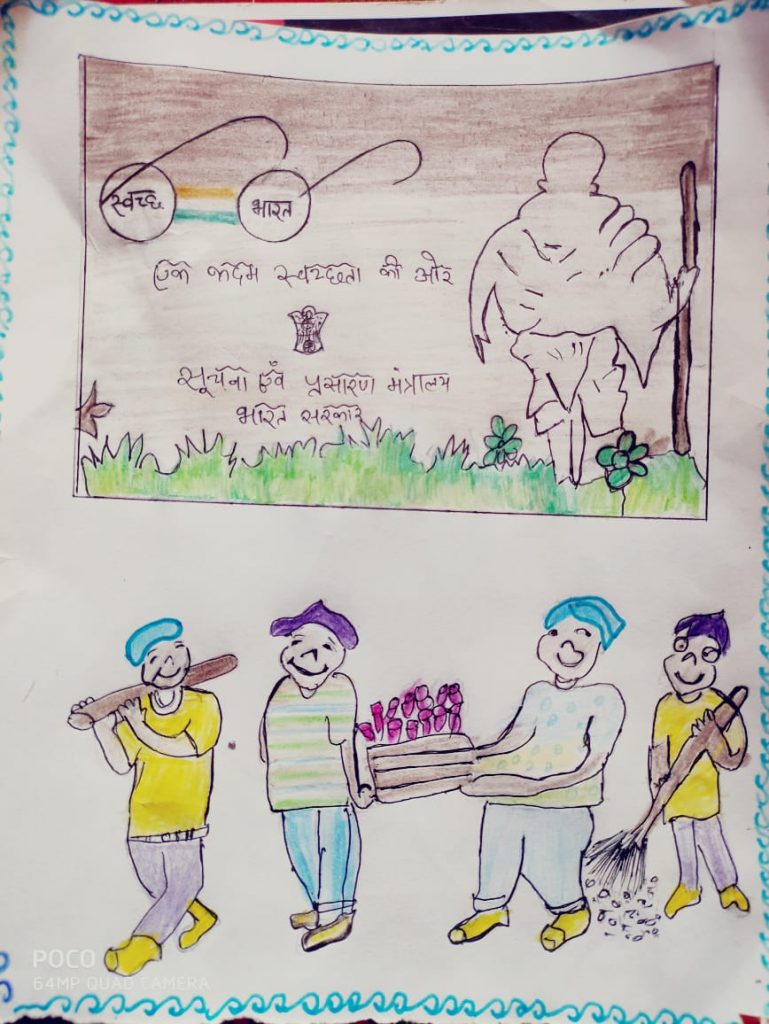 स्वच्छ भारत
एक कदम स्वच्छता की ओर
सूचना एवं प्रसारण मंत्रालय
भारत सरकार
POCO
64MP QUAD CAMERA